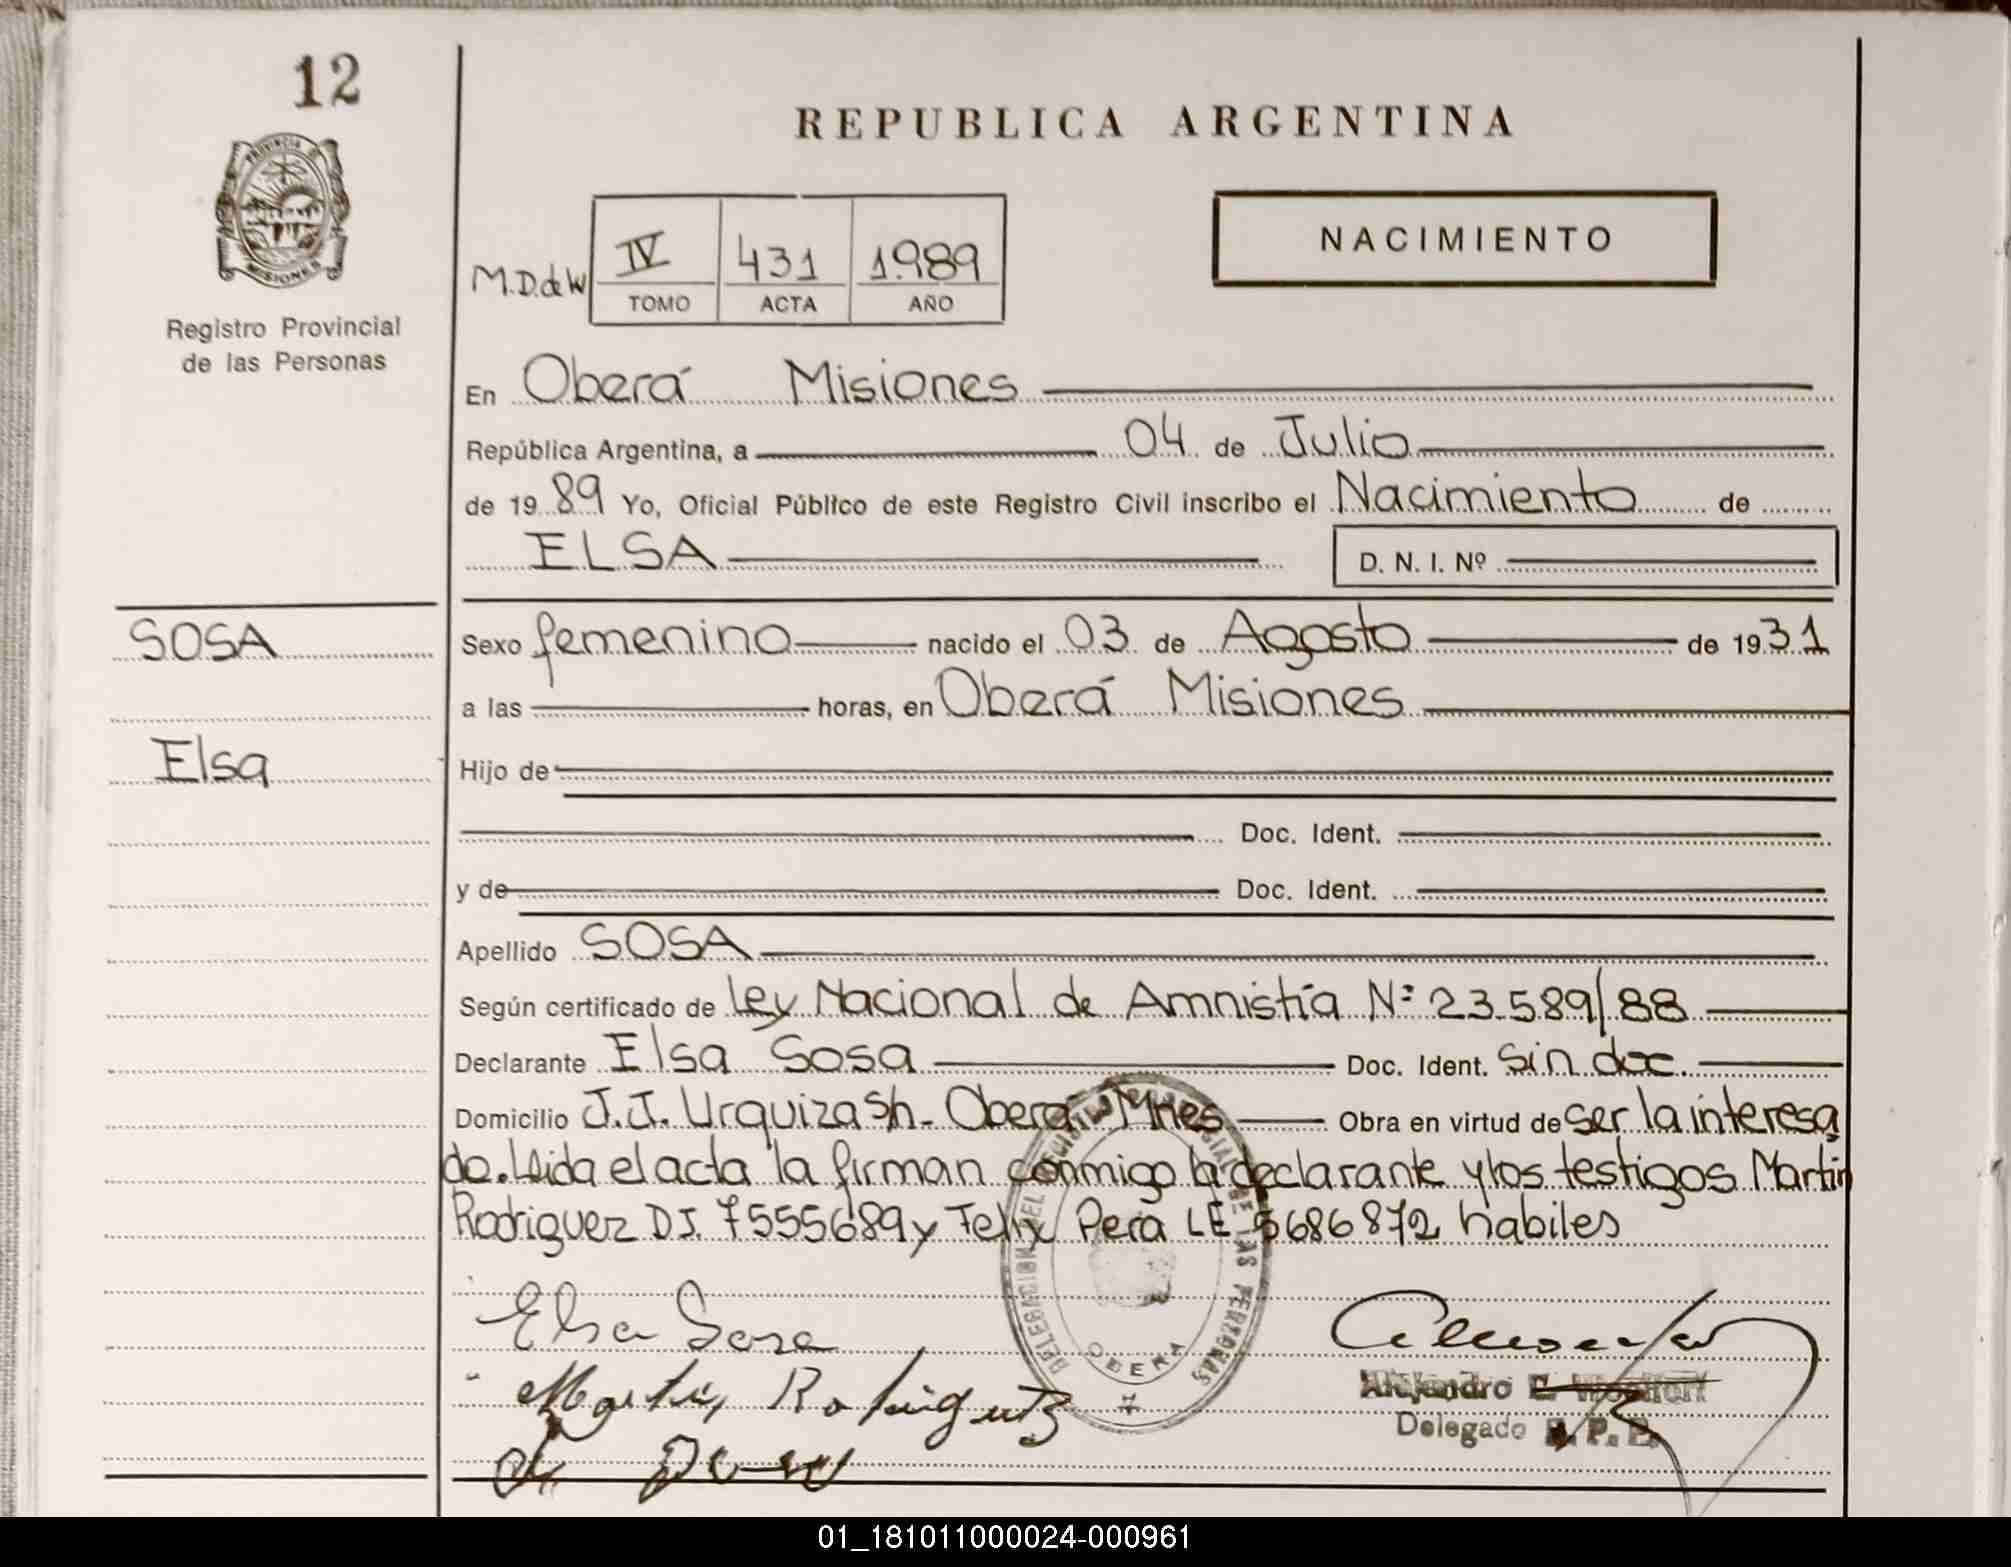 12
REPUBLICA ARGENTINA
PROVINCIA D
MISIONES
NACIMIENTO
M.D. de W
IV 431 1.989
TOMO ACTA AÑO
Registro Provincial
de las Personas
En Oberá Misiones
República Argentina, a 04 de Julio
de 19 89 Yo, Oficial Público de este Registro Civil inscribo el Nacimiento de
ELSA D. N. I. Nº
SOSA
Elsa
Sexo femenino nacido el 03 de Agosto de 1931
a las horas, en Oberá Misiones
Hijo de
Doc. Ident.
y de Doc. Ident.
Apellido SOSA
Según certificado de Ley Nacional de Amnistía Nº 23.589/88
Declarante Elsa Sosa Doc. Ident. Sin doc.
Domicilio J.J. Urquiza s/n - Oberá - Mnes Obra en virtud de ser la interesa
da. Leida el acta la firman conmigo la declarante y los testigos Martin
Rodriguez D.I. 7555689 y Felix Pera LE 5686872 habiles
Elsa Sosa
Martin Rodriguez
DELEGACION DEL REGISTRO PROVINCIAL DE LAS PERSONAS
OBERA
Alejandro E.
Delegado R. P. P.
01_181011000024-000961